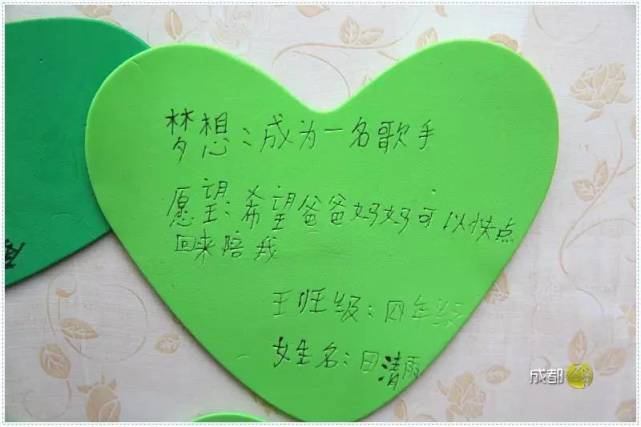 梦想：成为一名歌手
愿望：希望爸爸妈妈可以快点
回来陪我
班级：四年级
姓名：田清雨
成都